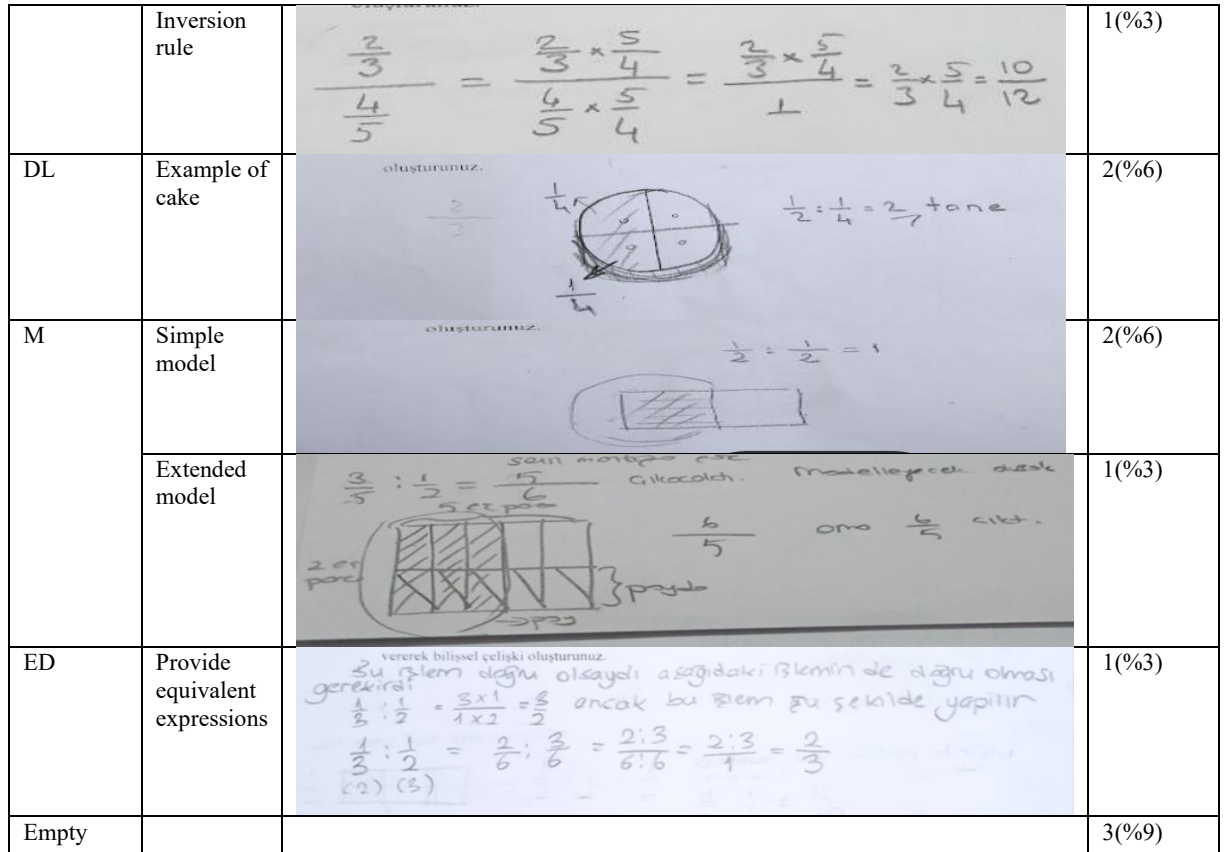 Inversion rule
2/3 / 4/5 = 2/3 × 5/4 / 4/5 × 5/4 = 2/3 × 5/4 / 1 = 2/3 × 5/4 = 10/12
1(%3)
DL
Example of cake
oluşturunuz.
2/3
1/4
1/4
1/2 : 1/4 = 2 tane
2(%6)
M
Simple model
oluşturunuz.
1/2 : 1/2 = 1
2(%6)
Extended model
3/5 : 1/2 = 5/6 çıkacaktı.
6/5 ama 6/5 çıktı.
2 er
payda
pay
1(%3)
ED
Provide equivalent expressions
vererek bilişsel çelişki oluşturunuz.
Bu işlem doğru olsaydı aşağıdaki işlemin de doğru olması
gerekirdi
1/3 : 1/2 = 3×1/1×2 = 3/2 ancak bu işlem şu şekilde yapılır
1/3 : 1/2 = 2/6 : 3/6 = 2:3/6:6 = 2:3/1 = 2/3
(2) (3)
1(%3)
Empty
3(%9)